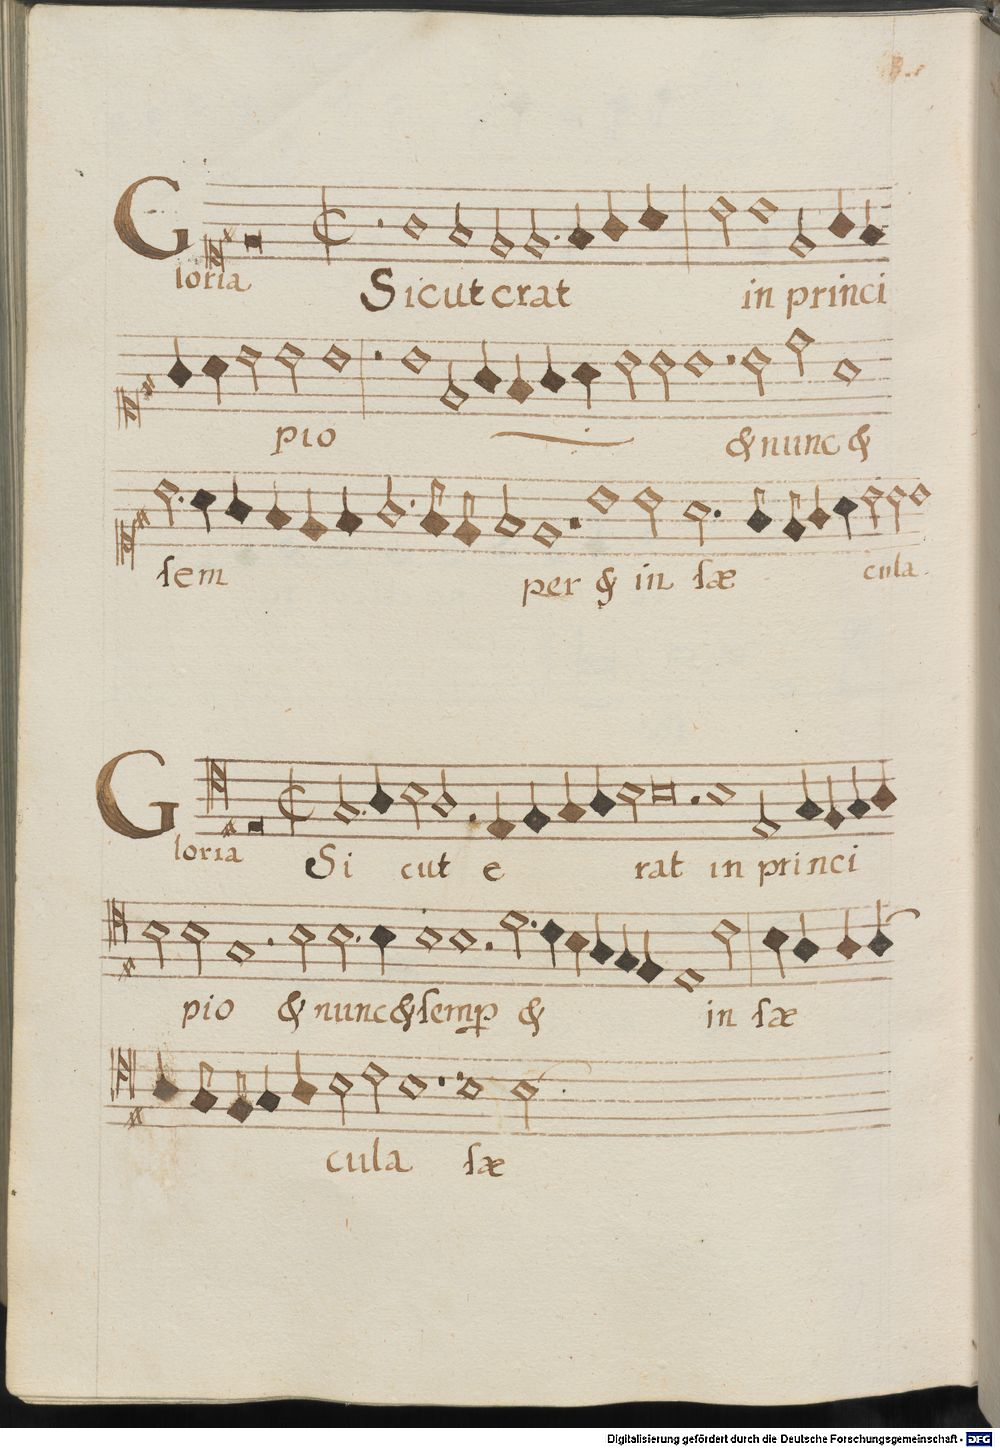 Gloria Sicut erat in princi
pio & nunc &
sem per & in sæ cula
Gloria Si cut e rat in princi
pio & nunc & semp & in sæ
cula sæ
Digitalisierung gefördert durch die Deutsche Forschungsgemeinschaft - DFG